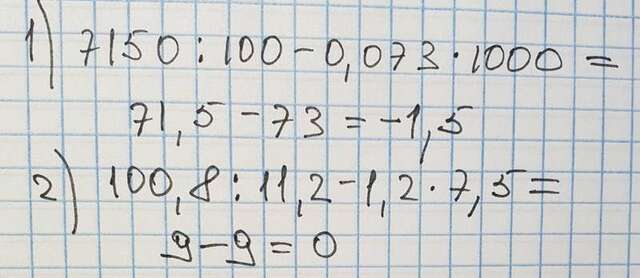 1) 7150 : 100 - 0,073 · 1000 =
71,5 - 73 = -1,5
2) 100,8 : 11,2 - 1,2 · 7,5 =
9 - 9 = 0